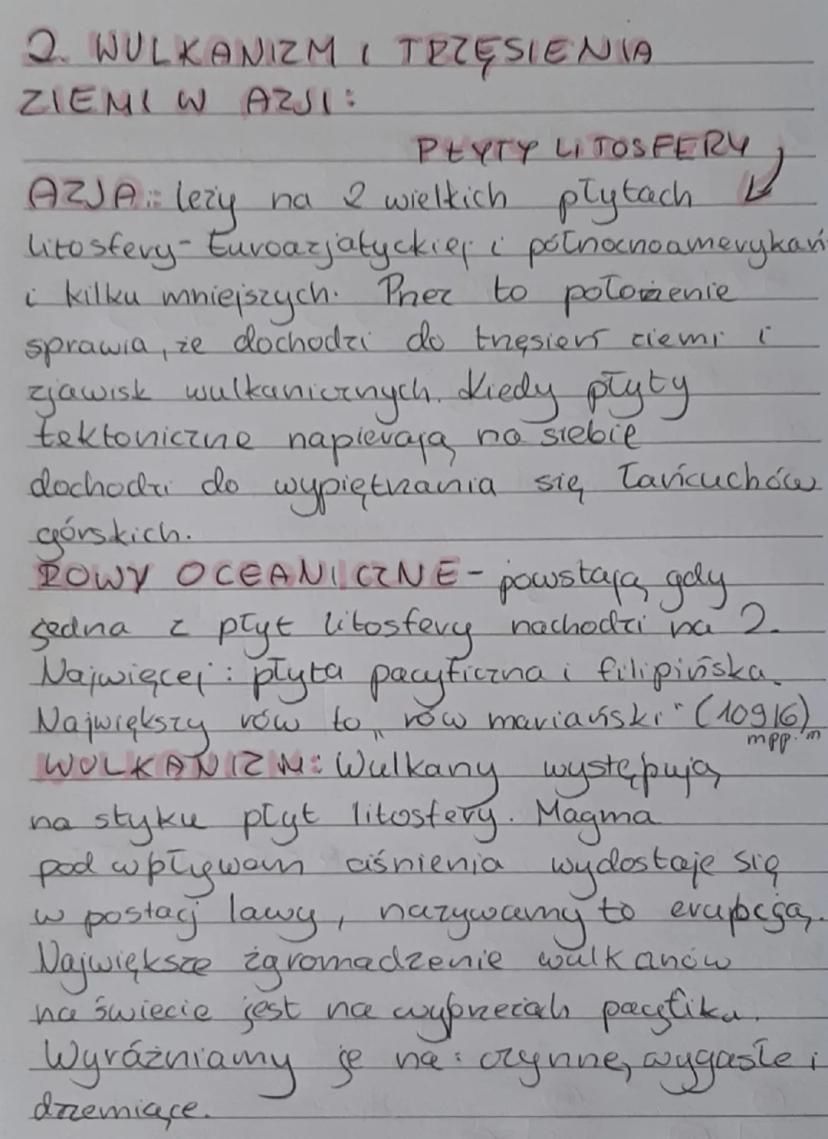 2. WULKANIZM I TRZĘSIENIA
ZIEMI W AZJI:
PŁYTY LITOSFERY
AZJA: leży na 2 wielkich płytach
litosfery - Euroazjatyckiej i północnoamerykań
i kilku mniejszych. Przez to położenie
sprawia, że dochodzi do trzęsień ziemi i
zjawisk wulkanicznych. Kiedy płyty
tektoniczne napierają na siebie
dochodzi do wypiętrzania się łańcuchów
górskich.
ROWY OCEANICZNE - powstają, gdy
jedna z płyt litosfery nachodzi na 2.
Najwięcej: płyta pacyficzna i filipińska.
Największy rów to „rów mariański" (10916)
mpp. m
WULKANIZM: Wulkany występują
na styku płyt litosfery. Magma
pod wpływam ciśnienia wydostaje się
w postacj lawy, nazywamy to erupcją.
Największe zgromadzenie wulkanów
na świecie jest na wybrzeżach pacyfiku.
Wyróżniamy je na: czynne, wygasłe i
drzemiące.